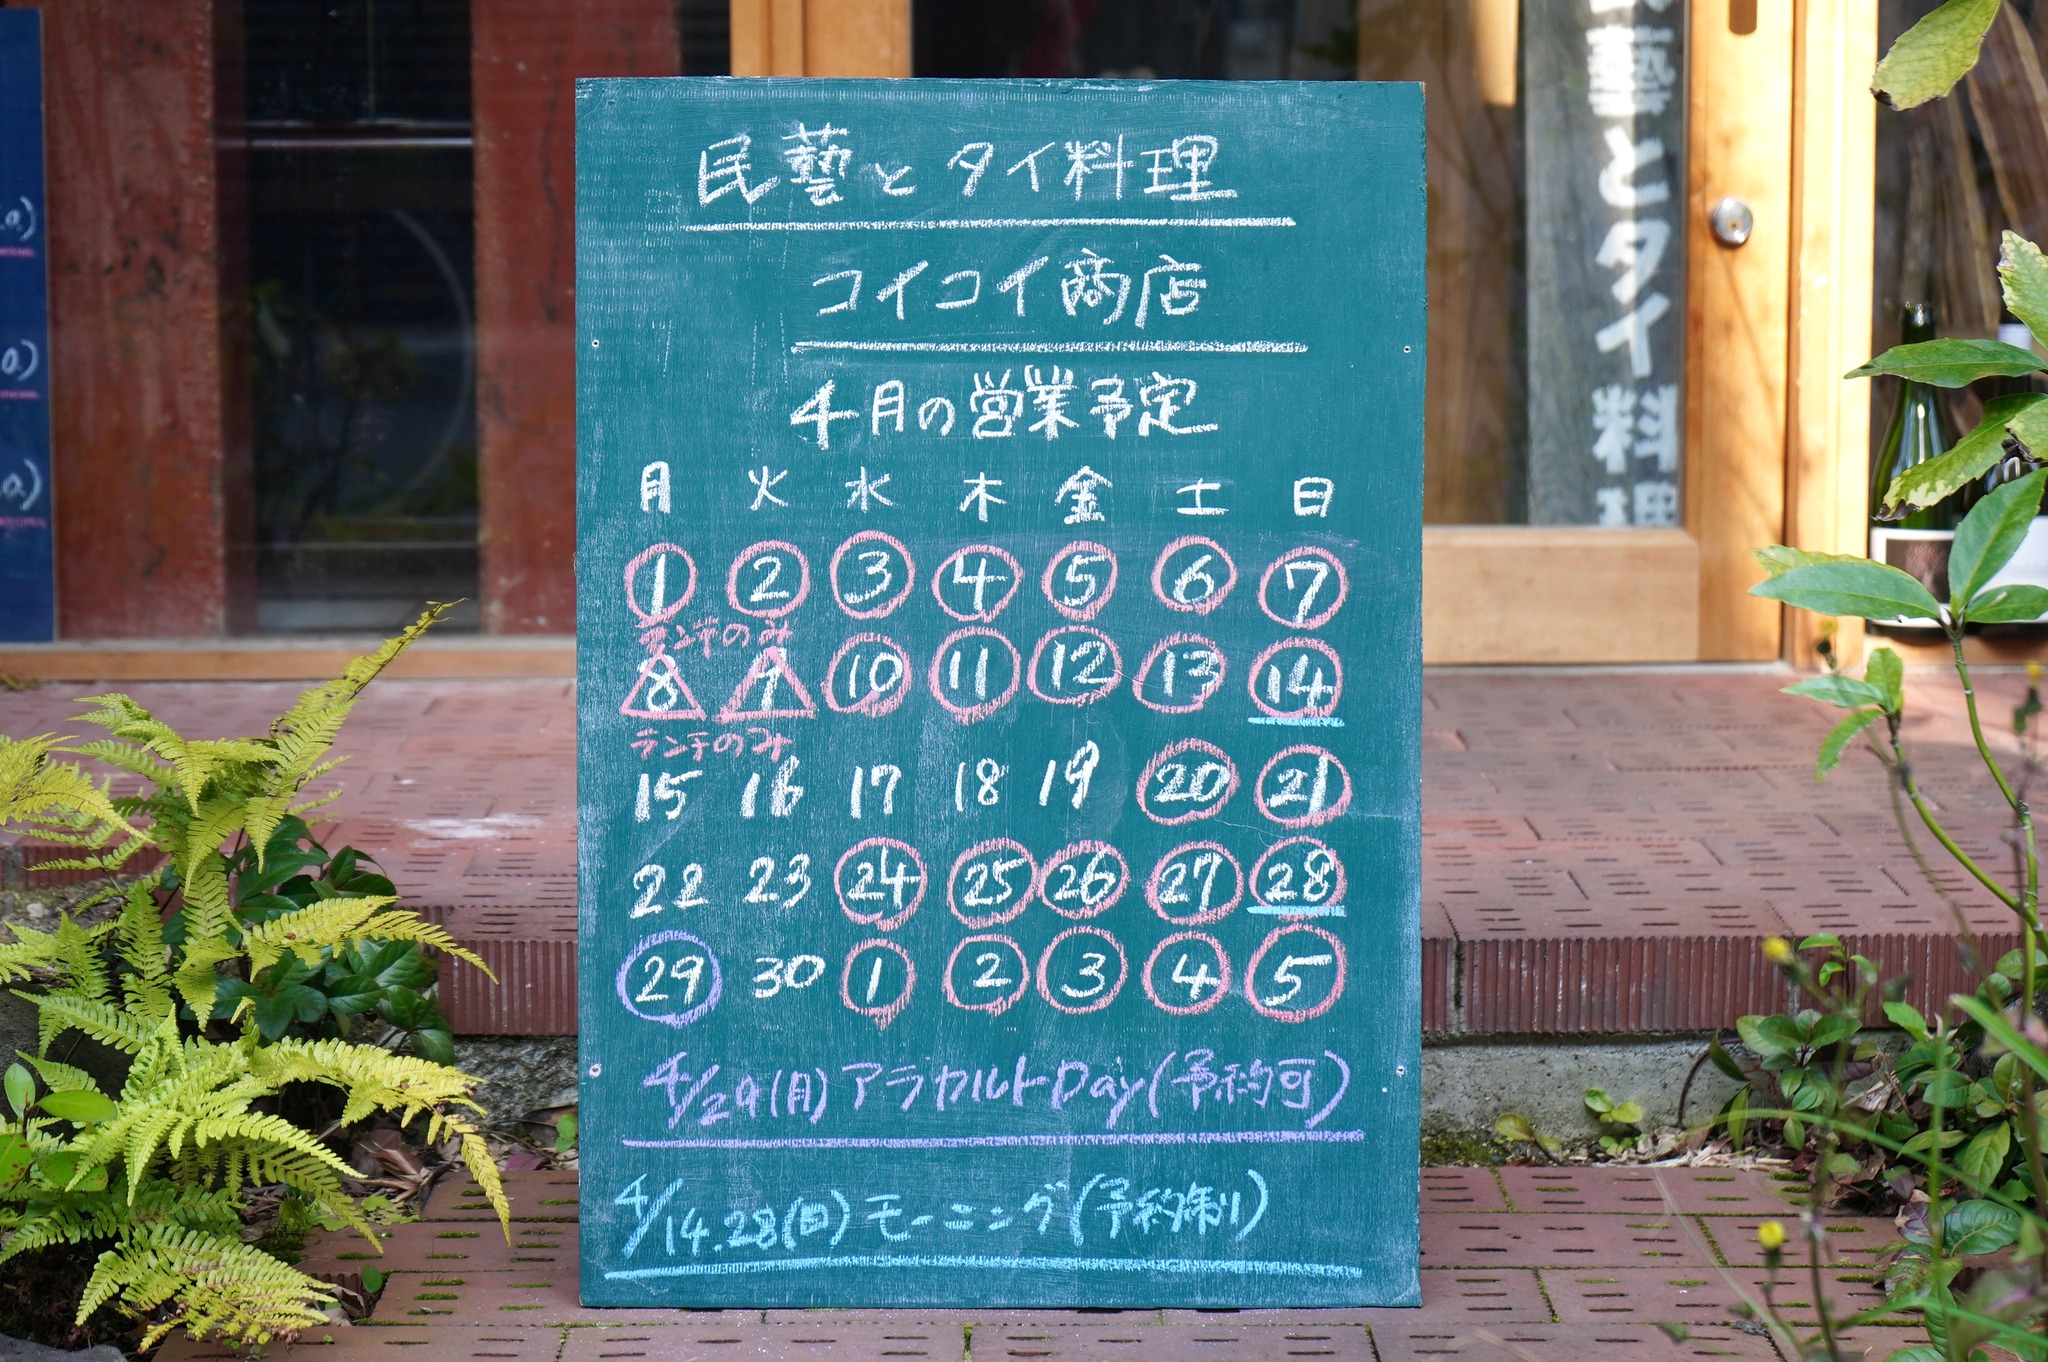 民藝とタイ料理
コイコイ商店
4月の営業予定
月 火 水 木 金 土 日
1 2 3 4 5 6 7
ランチのみ
8 9 10 11 12 13 14
ランチのみ
15 16 17 18 19 20 21
22 23 24 25 26 27 28
29 30 1 2 3 4 5
4/29(月)アラカルトDay(予約可)
4/14.28(日)モーニング(予約制)
藝とタイ料理